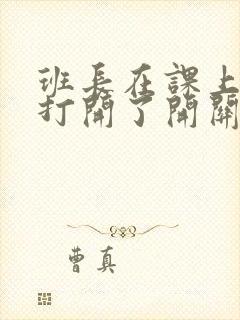 班長在課上
打開了開關
曹真